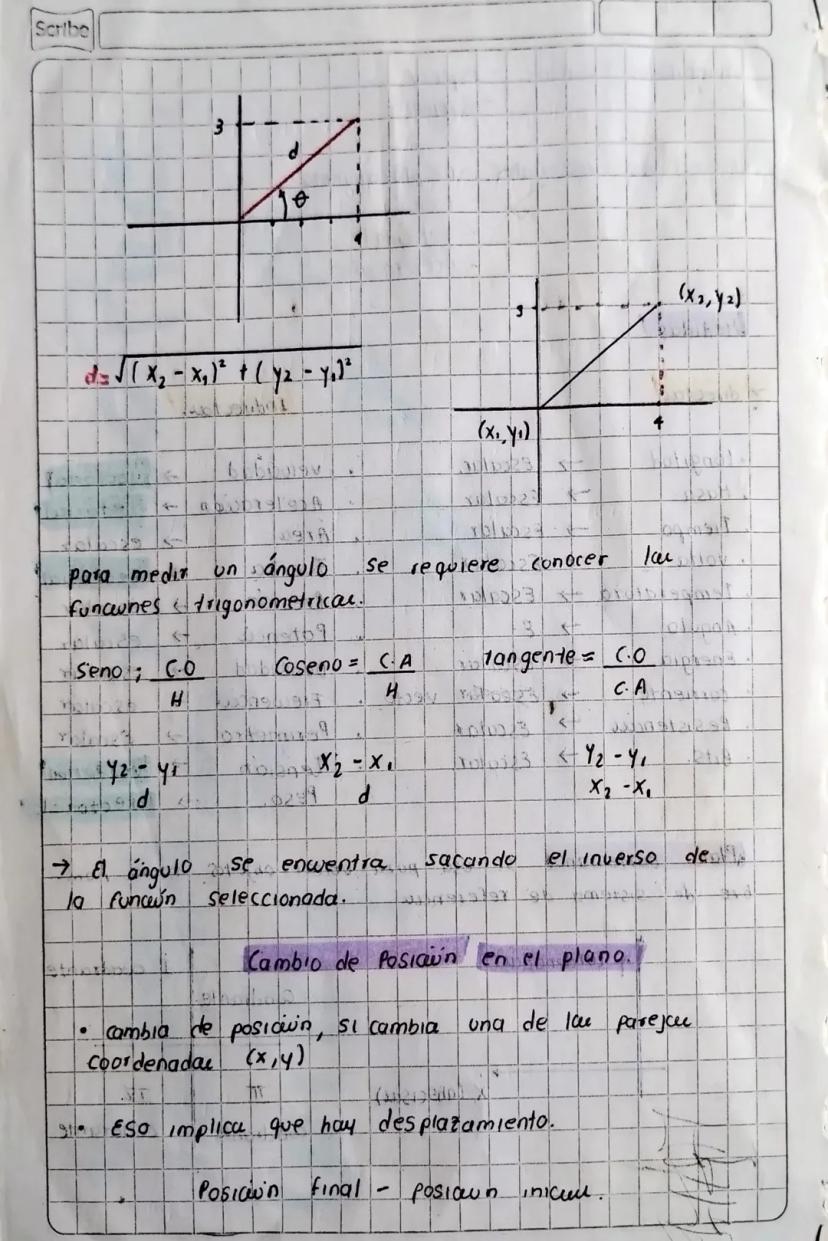 Scribe
3
d
θ
4
(x2, y2)
3
d= √(x2 - x1)² + (y2 - y1)²
(x1, y1)
4
para medir un ángulo se requiere conocer las
funciones trigonometricas.
Seno: C.O/H Coseno = C.A/H Tangente = C.O/C.A
y2 - y1 x2 - x1 y2 - y1
d d x2 - x1
→ El ángulo se encuentra sacando el inverso de
la función seleccionada.
Cambio de Posición en el plano.
• cambia de posición, si cambia una de las parejas
coordenadas (x,y)
• Eso implica que hay desplazamiento.
Posición final - posición inicial.